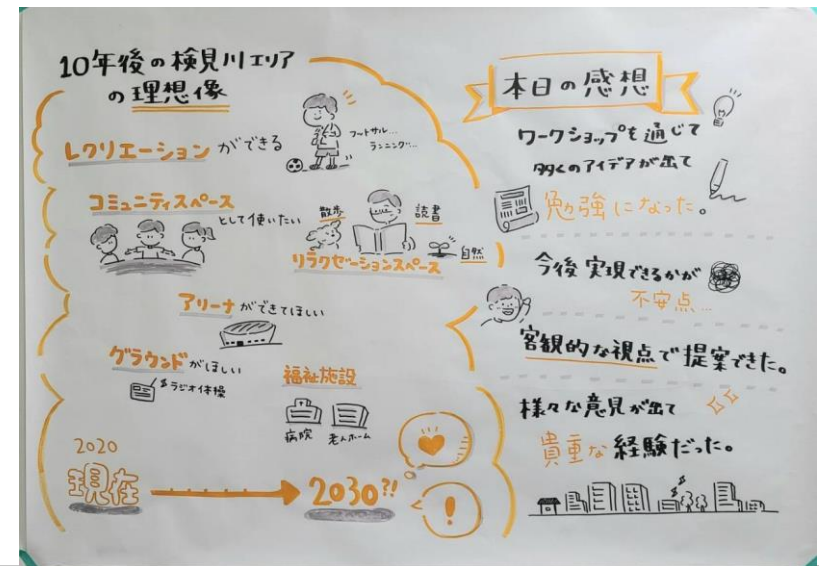 10年後の検見川エリア
の理想像
レクリエーションができる
フットサル...
ランニング...
コミュニティスペース
として使いたい
散歩
読書
自然
リラクゼーションスペース
アリーナができてほしい
グラウンドがほしい
ラジオ体操
福祉施設
病院
老人ホーム
2020
現在
2030?!
本日の感想
ワークショップを通じて
多くのアイデアが出て
勉強になった。
今後実現できるかが
不安点...
客観的な視点で提案できた。
様々な意見が出て
貴重な経験だった。